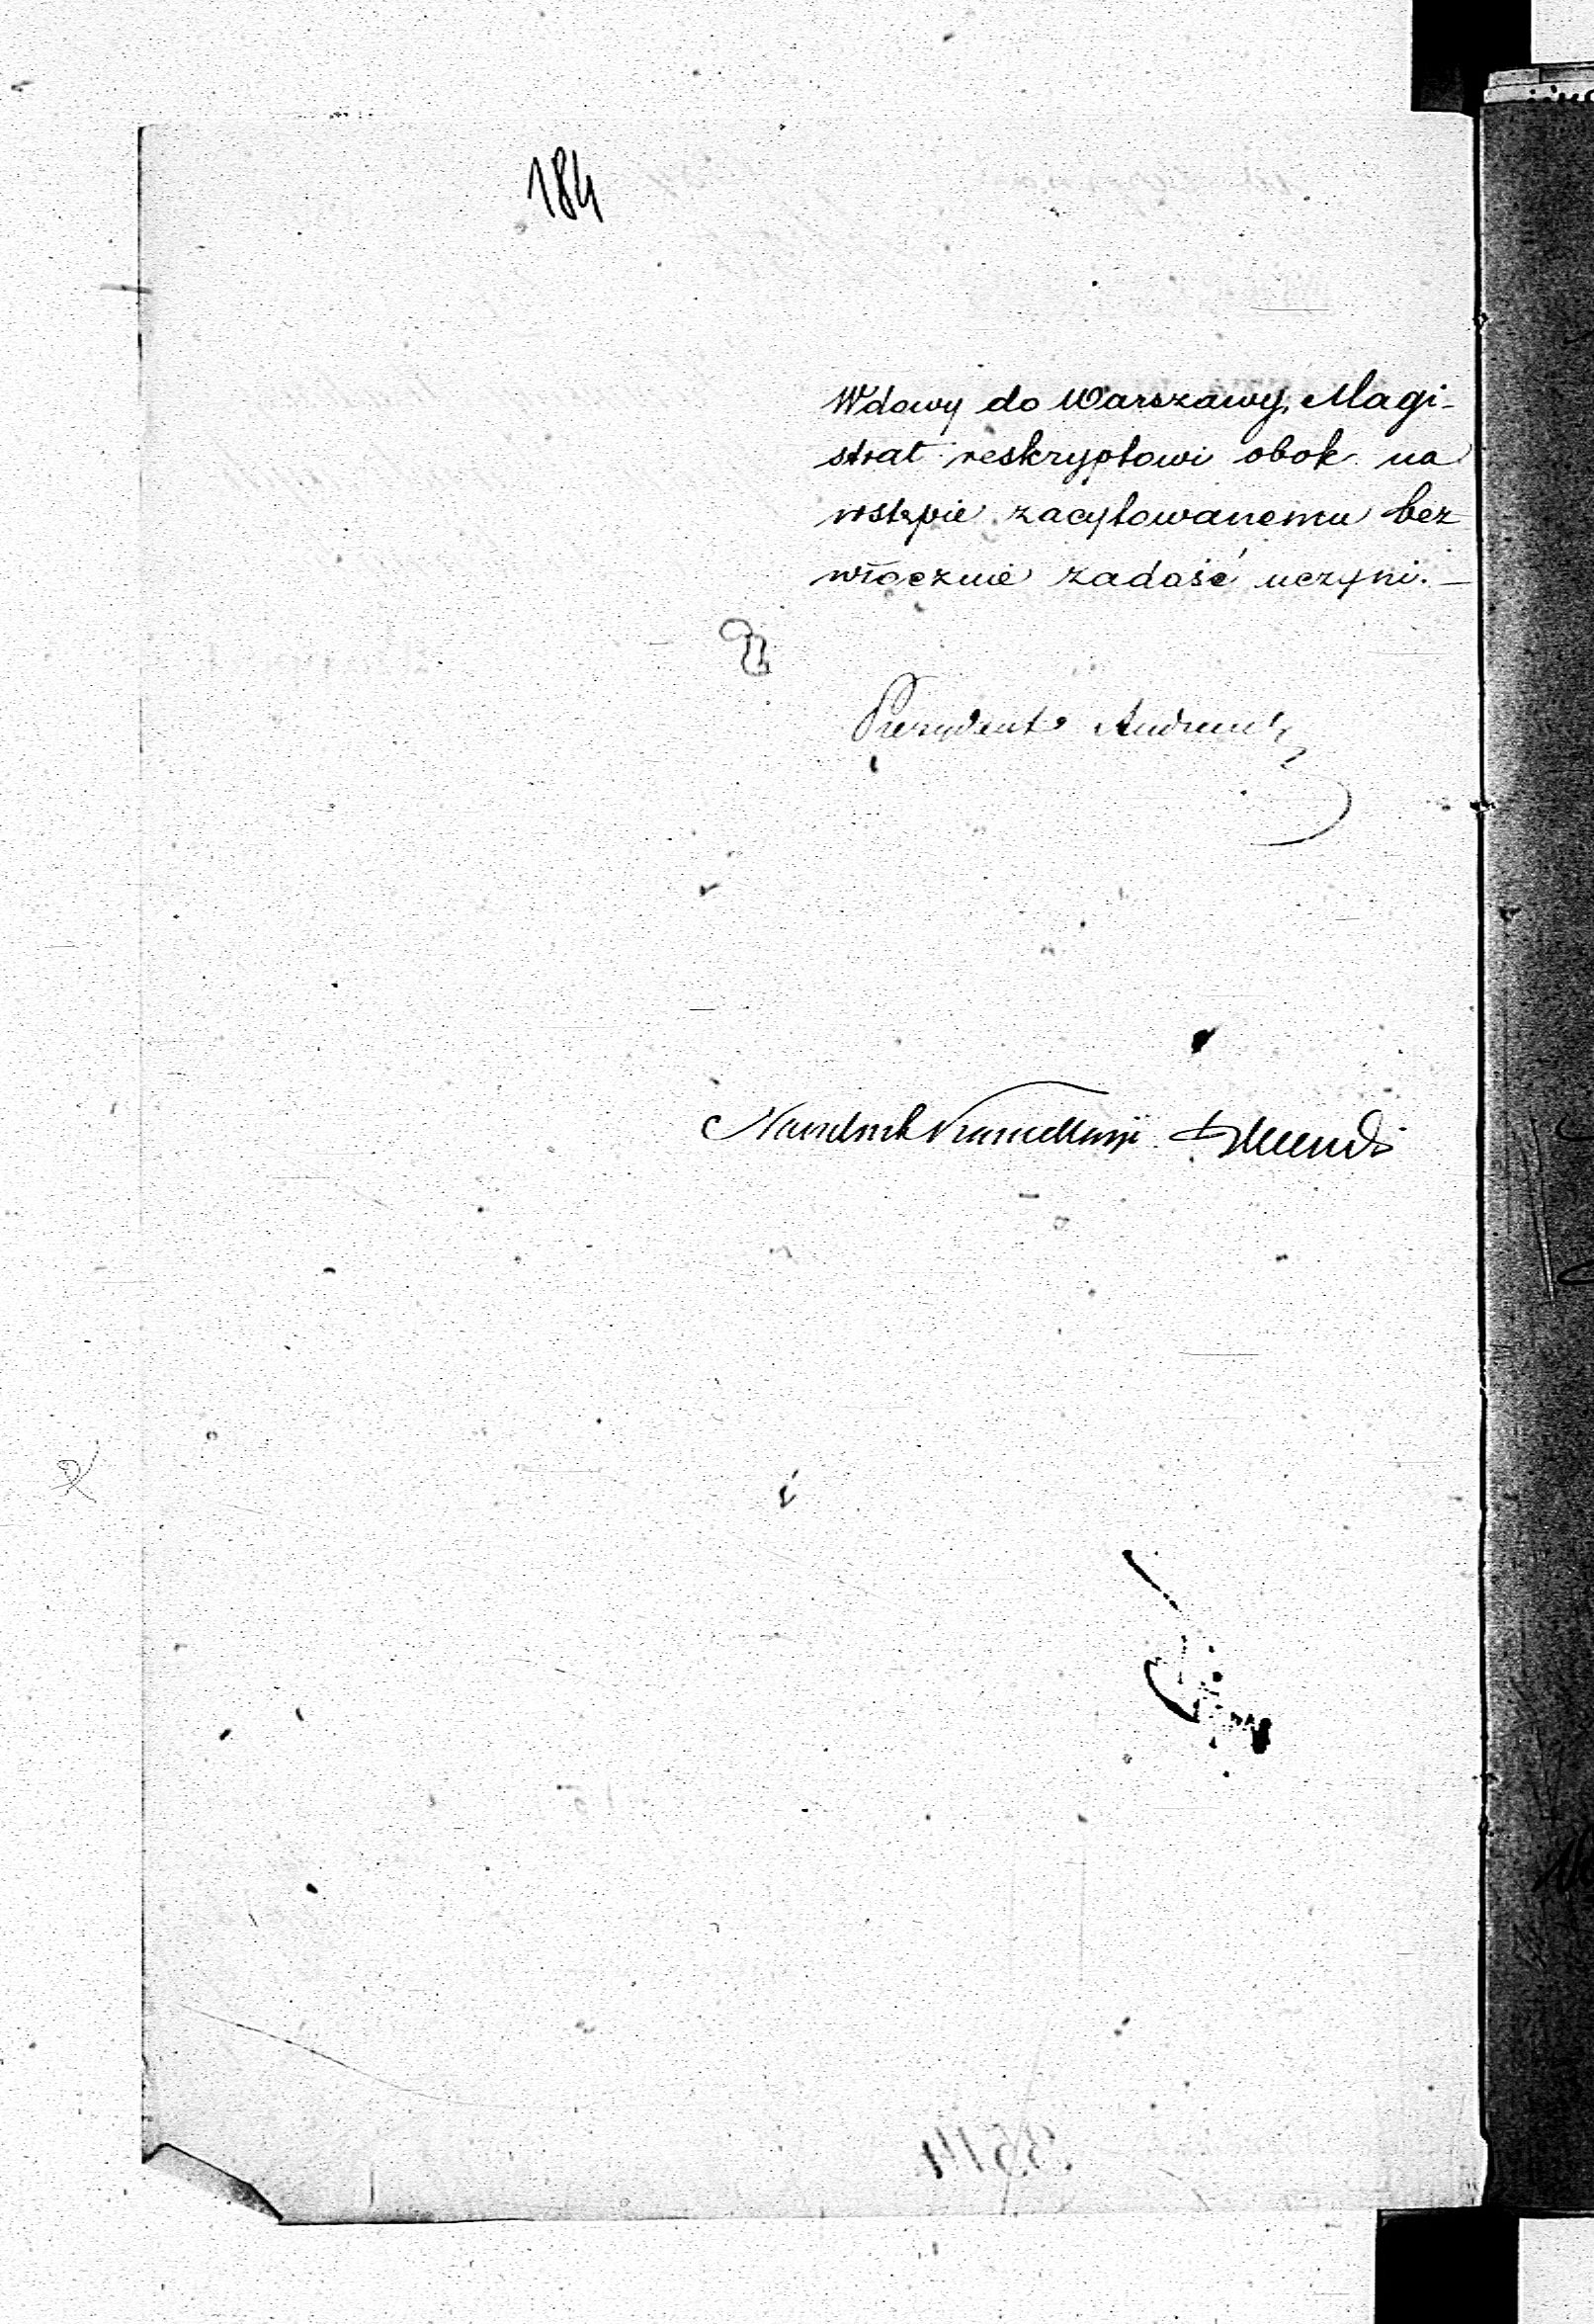 184
Wdowy do Warszawy, Magi-
strat reskryptowi obok na
wstępie zacytowanemu bez
włocznie zadość uczyni. —
Prezydent
Naczelnik Kancellaryi